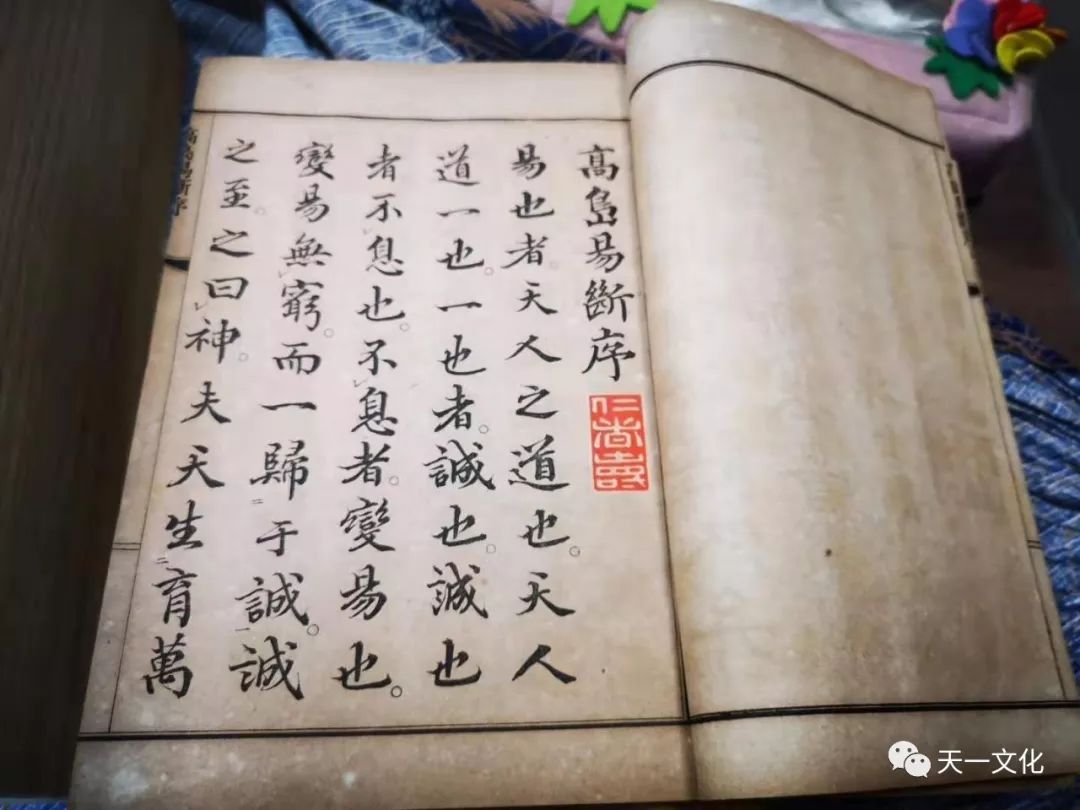 高島易斷序
仁者壽
易也者天人之道也。天人
道一也。一也者。誠也。誠也
者不息也。不息者。變易也。
變易無窮。而一歸于誠。誠
之至。之曰神。夫天生育萬
高島易斷序
天一文化